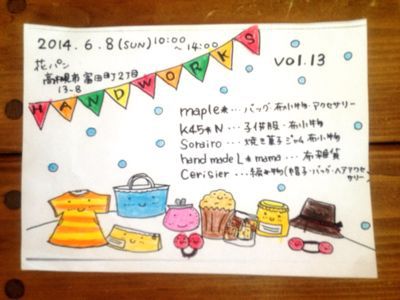 2014.6.8(SUN)10:00
～14:00
花パン
高槻市富田町2丁目
13-8
HANDWORKS
vol.13
maple*…バッグ・布小物・アクセサリー
K45*N…子供服・布小物
Sorairo…焼き菓子・ジャム・布小物
hand made L*mama…布雑貨
Cerisier…編み物(帽子・バッグ・ヘアアクセ
サリー)